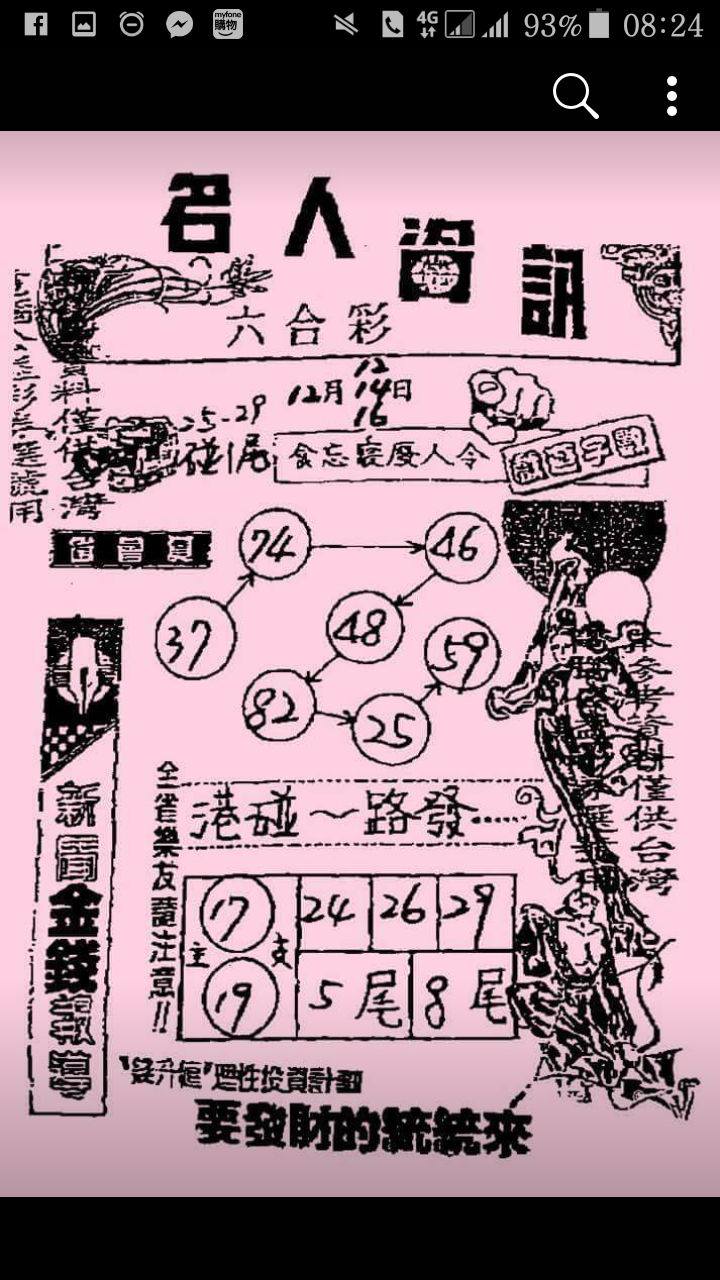 myfone
購物
4G
93%
08:24
名人資訊
六合彩
12
12月14日
16
25-29
碰尾
食忘寢廢人令
省會員
74
46
37
48
59
82
25
港碰～一路發……
全省樂友請注意!!
17
19
主
支
24
26
29
5尾
8尾
金錢報導
本參考資料僅供台灣
資料僅供台灣
選號用
理性投資計劃
要發財的統統來